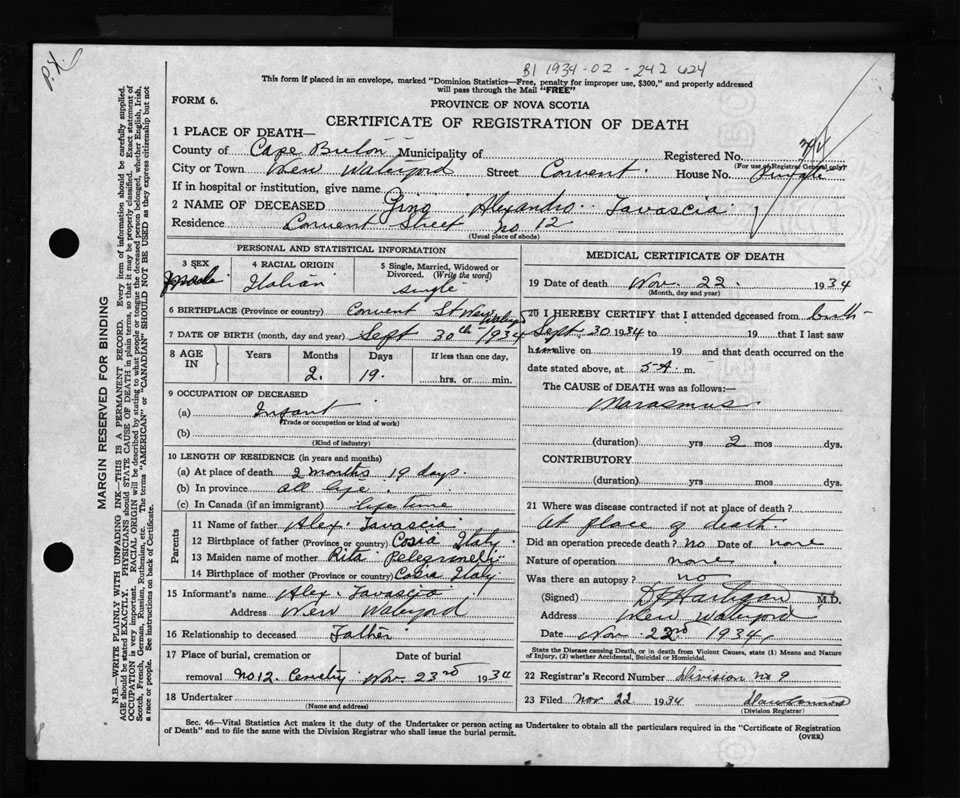 P.X.
B1 1934-02-242 624
This form if placed in an envelope, marked "Dominion Statistics—Free, penalty for improper use, $300," and properly addressed
will pass through the Mail "FREE"
FORM 6.
PROVINCE OF NOVA SCOTIA
CERTIFICATE OF REGISTRATION OF DEATH
1 PLACE OF DEATH—
County of Cape Breton Municipality of Registered No.
(For use of Registrar General only)
City or Town New Waterford Street Convent. House No.
If in hospital or institution, give name
2 NAME OF DECEASED Gino Alexandro Tavascia
Residence Convent Street no 12
(Usual place of abode)
PERSONAL AND STATISTICAL INFORMATION
3 SEX male
4 RACIAL ORIGIN Italian
5 Single, Married, Widowed or Divorced. (Write the word) single
6 BIRTHPLACE (Province or country) Convent St New Waterford
7 DATE OF BIRTH (month, day and year) Sept 30th 1934
8 AGE IN Years Months 2. Days 19. If less than one day, hrs. or min.
9 OCCUPATION OF DECEASED
(a) Infant
(Trade or occupation or kind of work)
(b)
(Kind of industry)
10 LENGTH OF RESIDENCE (in years and months)
(a) At place of death 2 months 19 days.
(b) In province all life
(c) In Canada (if an immigrant) life time
Parents
11 Name of father Alex. Tavascia
12 Birthplace of father (Province or country) Cosia Italy
13 Maiden name of mother Rita Pelegrinelli
14 Birthplace of mother (Province or country) Cosia Italy
15 Informant's name Alex. Tavascia
Address New Waterford
16 Relationship to deceased Father
17 Place of burial, cremation or Date of burial
removal no. 12 Cemetry Nov. 23rd 1934
18 Undertaker
(Name and address)
MEDICAL CERTIFICATE OF DEATH
19 Date of death Nov. 22. 1934
(Month, day and year)
20 I HEREBY CERTIFY that I attended deceased from birth
Sept. 30 1934 to 19 that I last saw
him alive on 19 and that death occurred on the
date stated above, at 5 A. m.
The CAUSE OF DEATH was as follows:—
Marasmus
(duration) yrs 2 mos dys.
CONTRIBUTORY
(duration) yrs mos dys.
21 Where was disease contracted if not at place of death?
At place of death.
Did an operation precede death? no Date of none
Nature of operation none
Was there an autopsy? no
(Signed) Hartigan M.D.
Address New Waterford
Date Nov. 22nd 1934
State the Disease causing Death, or in death from Violent Causes, state (1) Means and Nature of Injury, (2) whether Accidental, Suicidal or Homicidal.
22 Registrar's Record Number Division No 9
23 Filed Nov 22 1934
(Division Registrar)
Sec. 46—Vital Statistics Act makes it the duty of the Undertaker or person acting as Undertaker to obtain all the particulars required in the "Certificate of Registration
of Death" and to file the same with the Division Registrar who shall issue the burial permit.
(OVER)
MARGIN RESERVED FOR BINDING
N.B.—WRITE PLAINLY WITH UNFADING INK—THIS IS A PERMANENT RECORD. Every item of information should be carefully supplied.
AGE should be stated EXACTLY. PHYSICIANS should STATE CAUSE OF DEATH in plain terms, so that it may be properly classified. Exact statement of
OCCUPATION is very important. RACIAL ORIGIN will be described by stating to what people or tongue the deceased person belonged, whether English, Irish,
Scotch, French, German, Russian, Ruthenian, etc. The terms "AMERICAN" or "CANADIAN" SHOULD NOT BE USED as they express citizenship but not
a race or people. See instructions on back of Certificate.